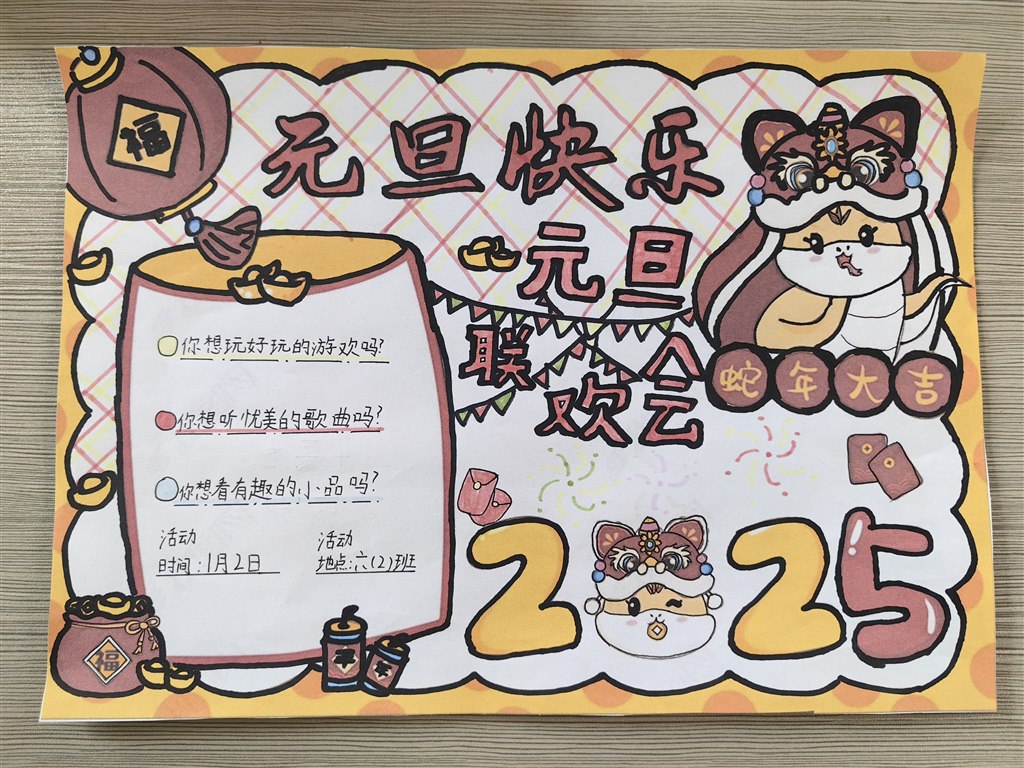 福
元旦快乐
元旦
联欢会
蛇年大吉
你想玩好玩的游欢吗?
你想听忧美的歌曲吗?
你想看有趣的小品吗?
活动
时间:1月2日
活动
地点:六(2)班
2025
福